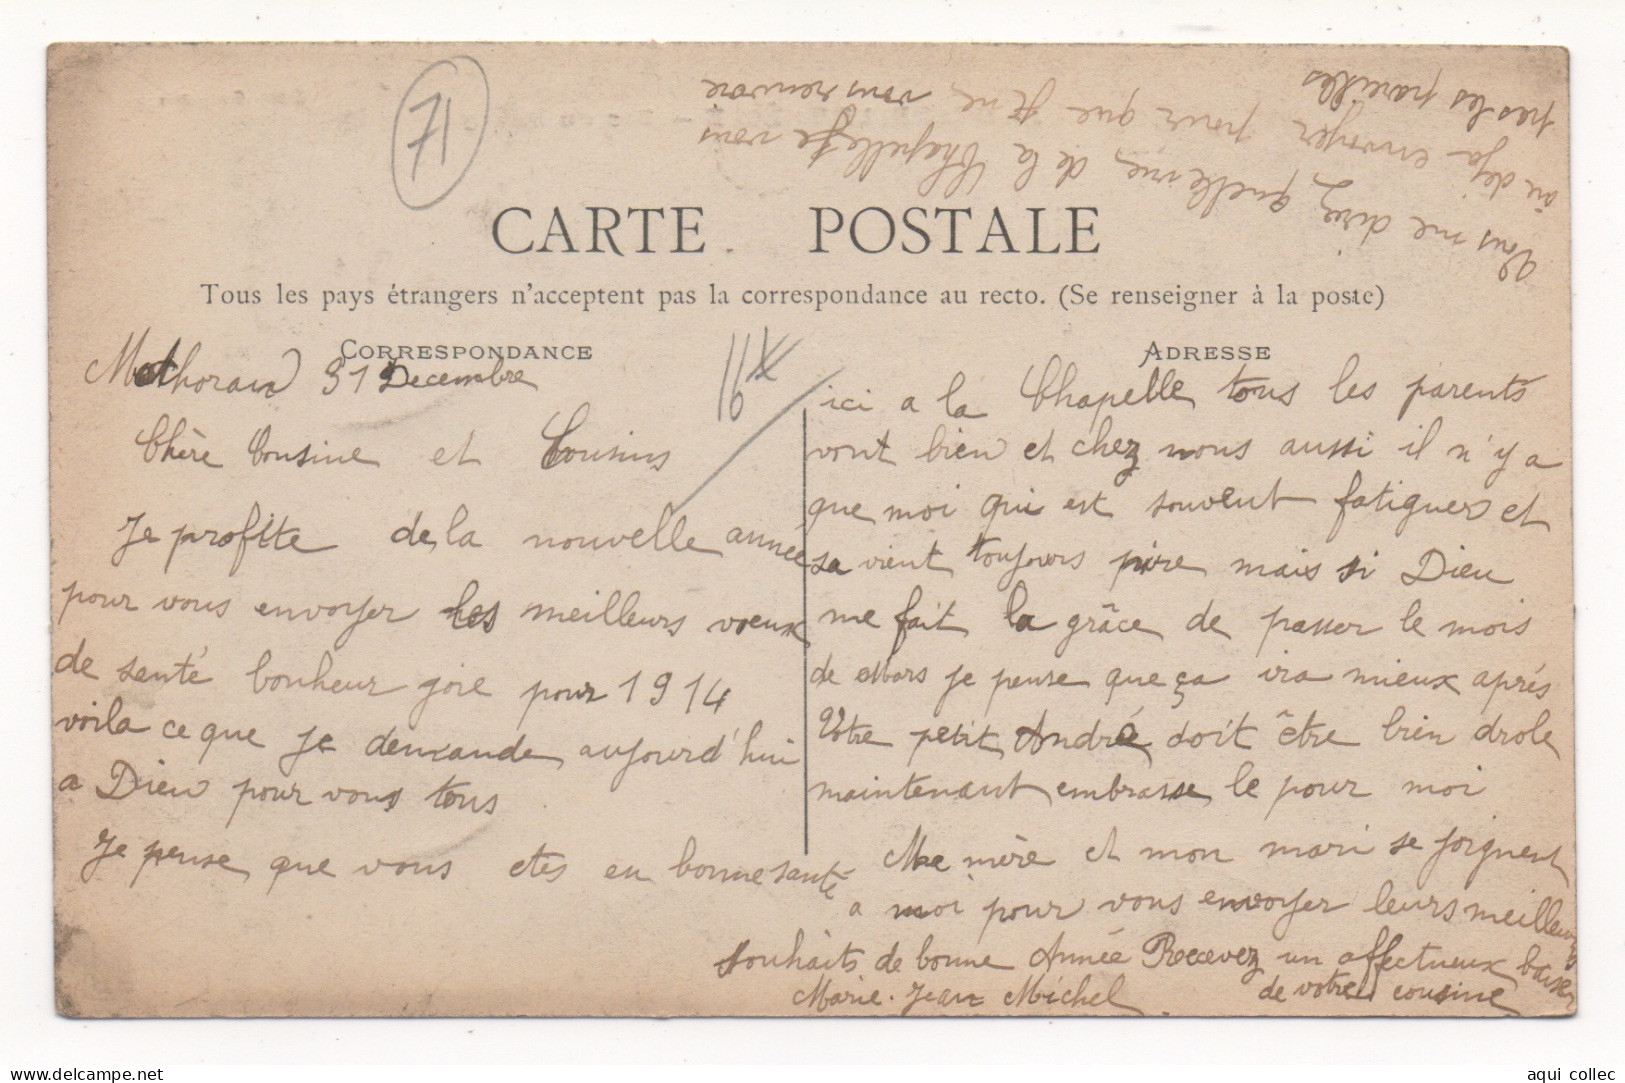 71
Vous me direz quelle vue de la Chapelle je vous
ai déja envoyer pour que je ne vous renvoie
pas les pareilles
CARTE POSTALE
Tous les pays étrangers n'acceptent pas la correspondance au recto. (Se renseigner à la poste)
CORRESPONDANCE
31 Decembre
Chère Cousine et Cousins
Je profite de la nouvelle année
pour vous envoyer les meilleurs voeux
de santé bonheur joie pour 1914
voila ce que je demande aujourd'hui
a Dieu pour vous tous
Je pense que vous etes en bonne santé
ADRESSE
ici a la Chapelle tous les parents
vont bien et chez nous aussi il n'y a
que moi qui est souvent fatiguer et
sa vient toujours pire mais si Dieu
me fait la grâce de passer le mois
de Mars je pense que ça ira mieux après
Votre petit André doit être bien drole
maintenant embrasse le pour moi
Me mère et mon mari se joignent
a moi pour vous envoyer leurs meilleurs
souhaits de bonne Année Recevez un affectueux baiser
Marie-Jean Michel de votre cousine
aqui collec